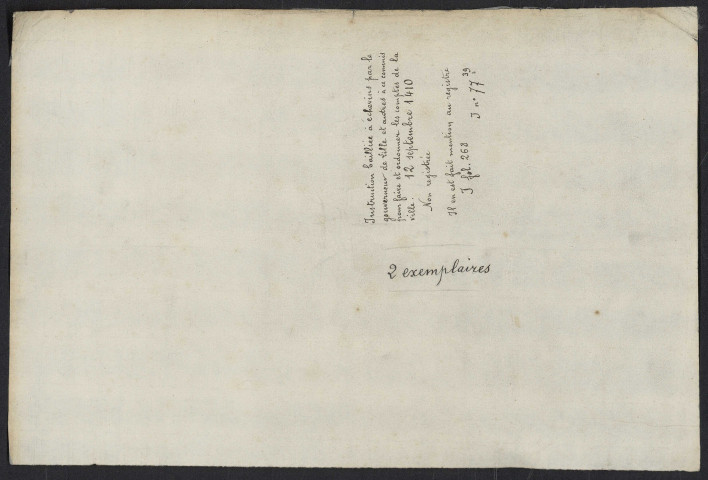 Instruction bailliée à échevins par le
gouverneur de Lille et autres à ce commis
pour faire et ordonner les comptes de la
ville. 12 septembre 1410
Non registrée
Il en est fait mention au registre
J fol. 268
J n° 77
39
2 exemplaires